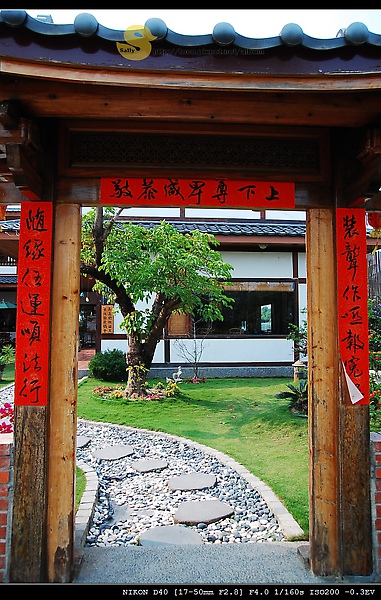 Sally
上下尊卑咸恭敬
裝聾作啞報冤
隨緣任運順法行
NIKON D40 [17-50mm F2.8] F4.0 1/160s ISO200 -0.3EV